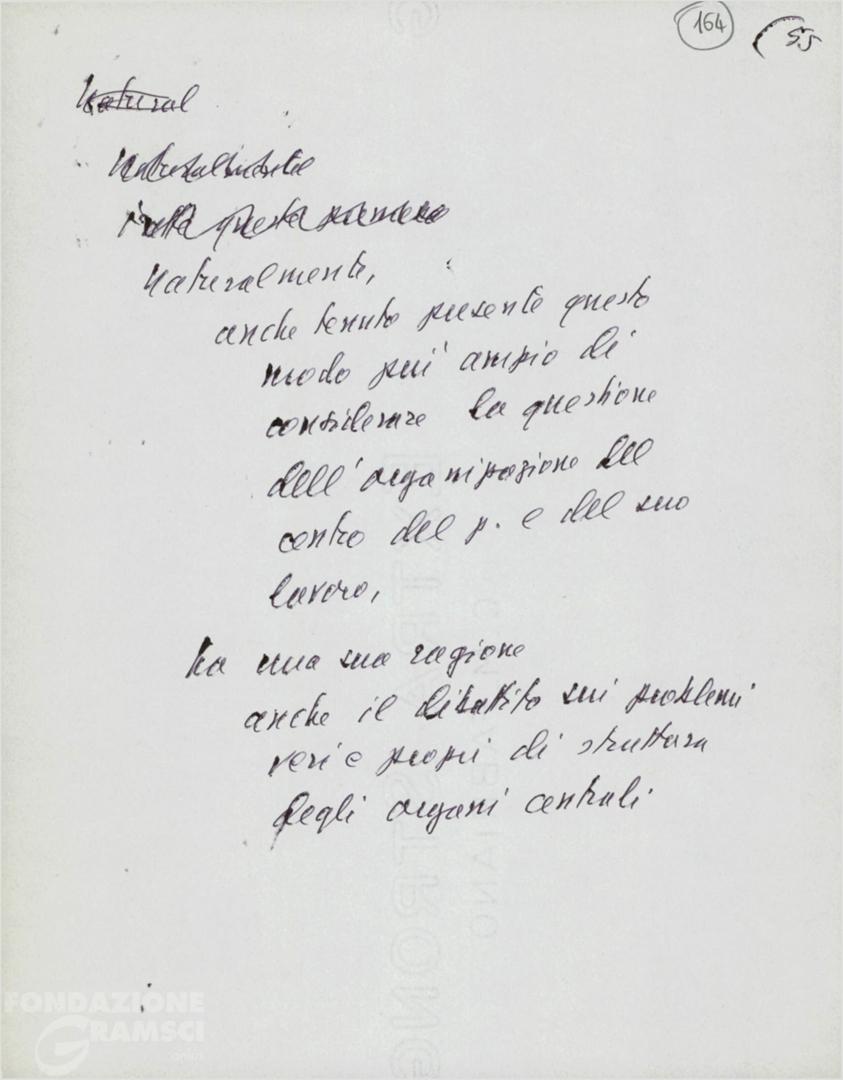 164 55
Natural
Naturalmente
tutta questa
Naturalmente,
anche tenuto presente questo
modo più ampio di
considerare la questione
dell'organizzazione del
centro del p. e del suo
lavoro,
ha una sua ragione
anche il dibattito sui problemi
veri e propri di struttura
degli organi centrali
FONDAZIONE
GRAMSCI
onlus